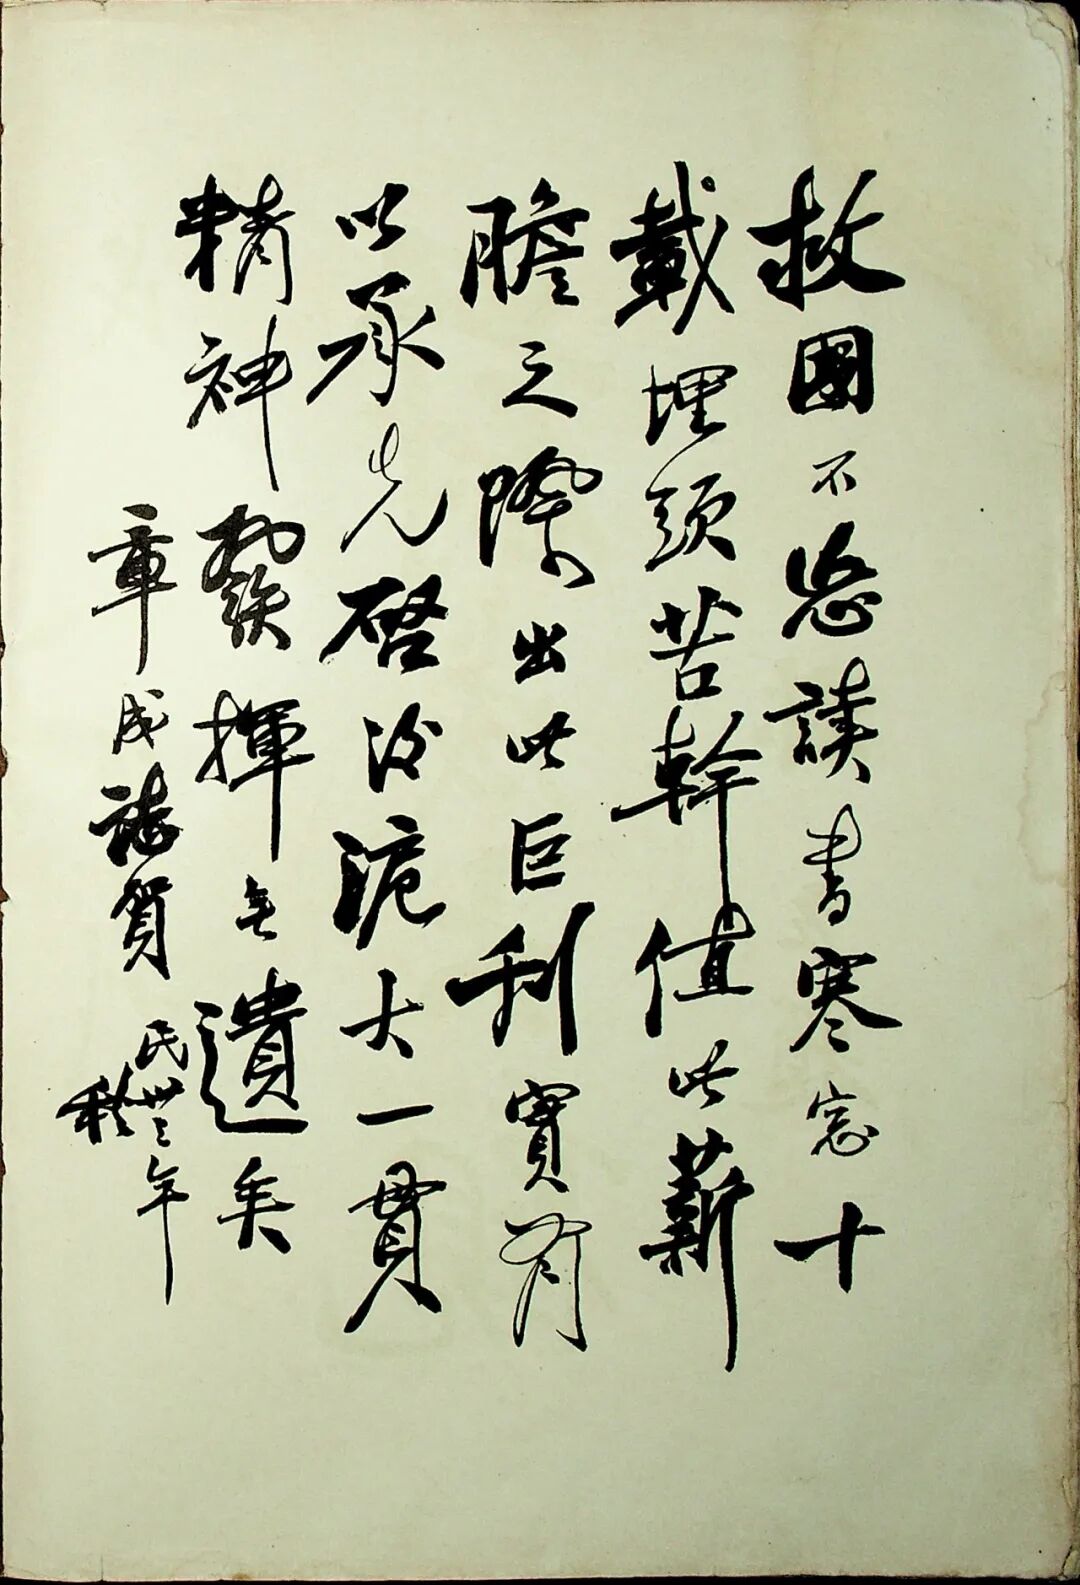 救國不忘讀書寒窓十
載埋頭苦幹值此薪
膽之際出此巨刊實有
以承先啓後滬大一貫
精神發揮無遺矣
章成誌賀 民卅三年
秋